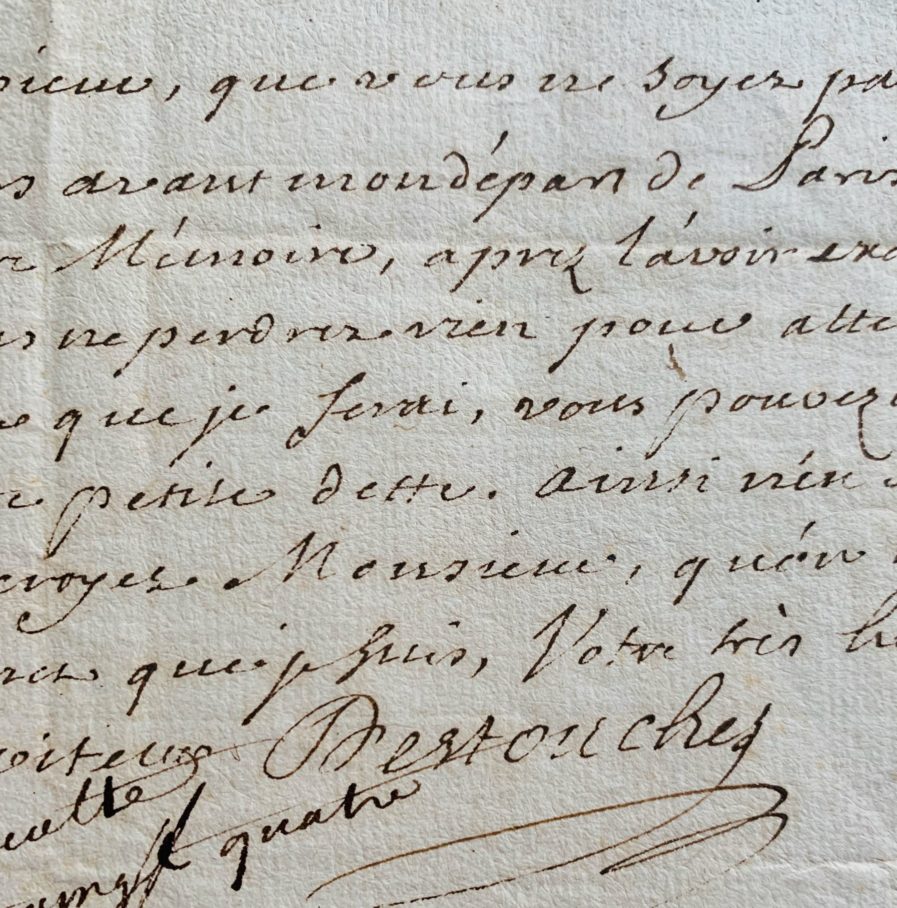 sieur, que vous ne soyez pa
s avant mon départ de Paris
re Mémoire, aprez l'avoir exa
us ne perdrez rien pour atte
e que je ferai, vous pouvez
e petite dette. Ainsi n'en
croyez Monsieur, qu'on
que je suis, Votre très hu
Destouches
quatre